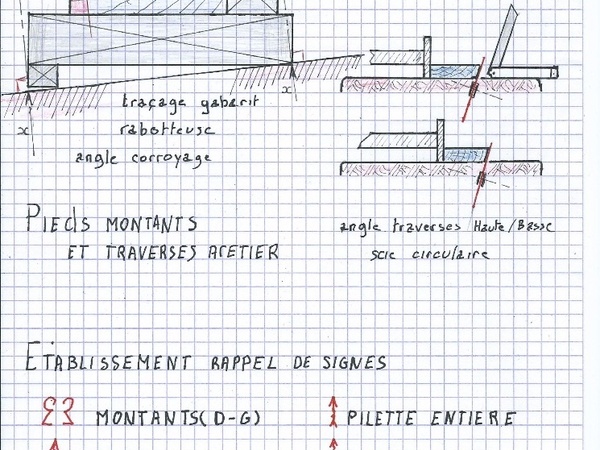 x
x
traçage gabarit
rabotteuse
angle corroyage
PIEDS MONTANTS
ET TRAVERSES ARETIER
angle traverses Haute/Basse
scie circulaire
ETABLISSEMENT RAPPEL DE SIGNES
MONTANTS(D-G)
PILETTE ENTIERE